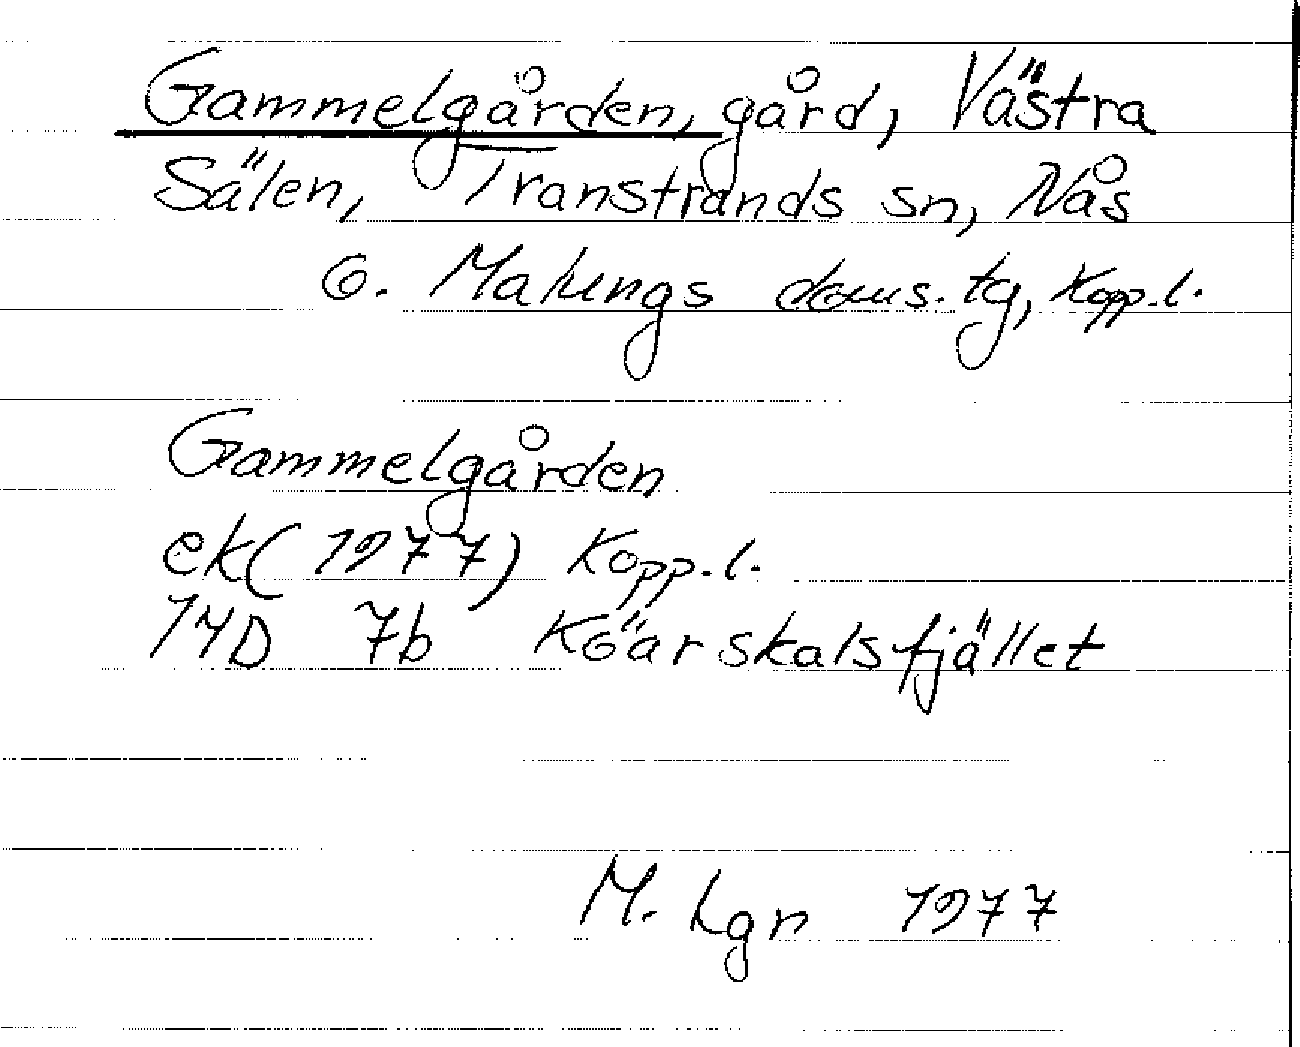 Gammelgården, gård, Västra
Sälen, Transtrands sn, Nås
o. Malungs doms. tg, Kopp. l.
Gammelgården
ek (1977) Kopp. l.
14D 7b Köarskalsfjället
M. Lgn 1977